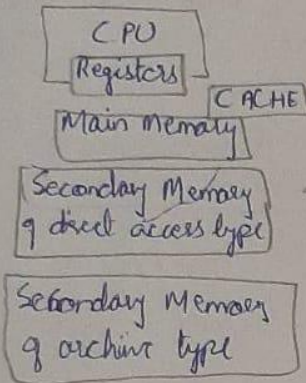 CPU
Registers
CACHE
Main Memory
Secondary Memory
of direct access type
Secondary Memory
of archive type